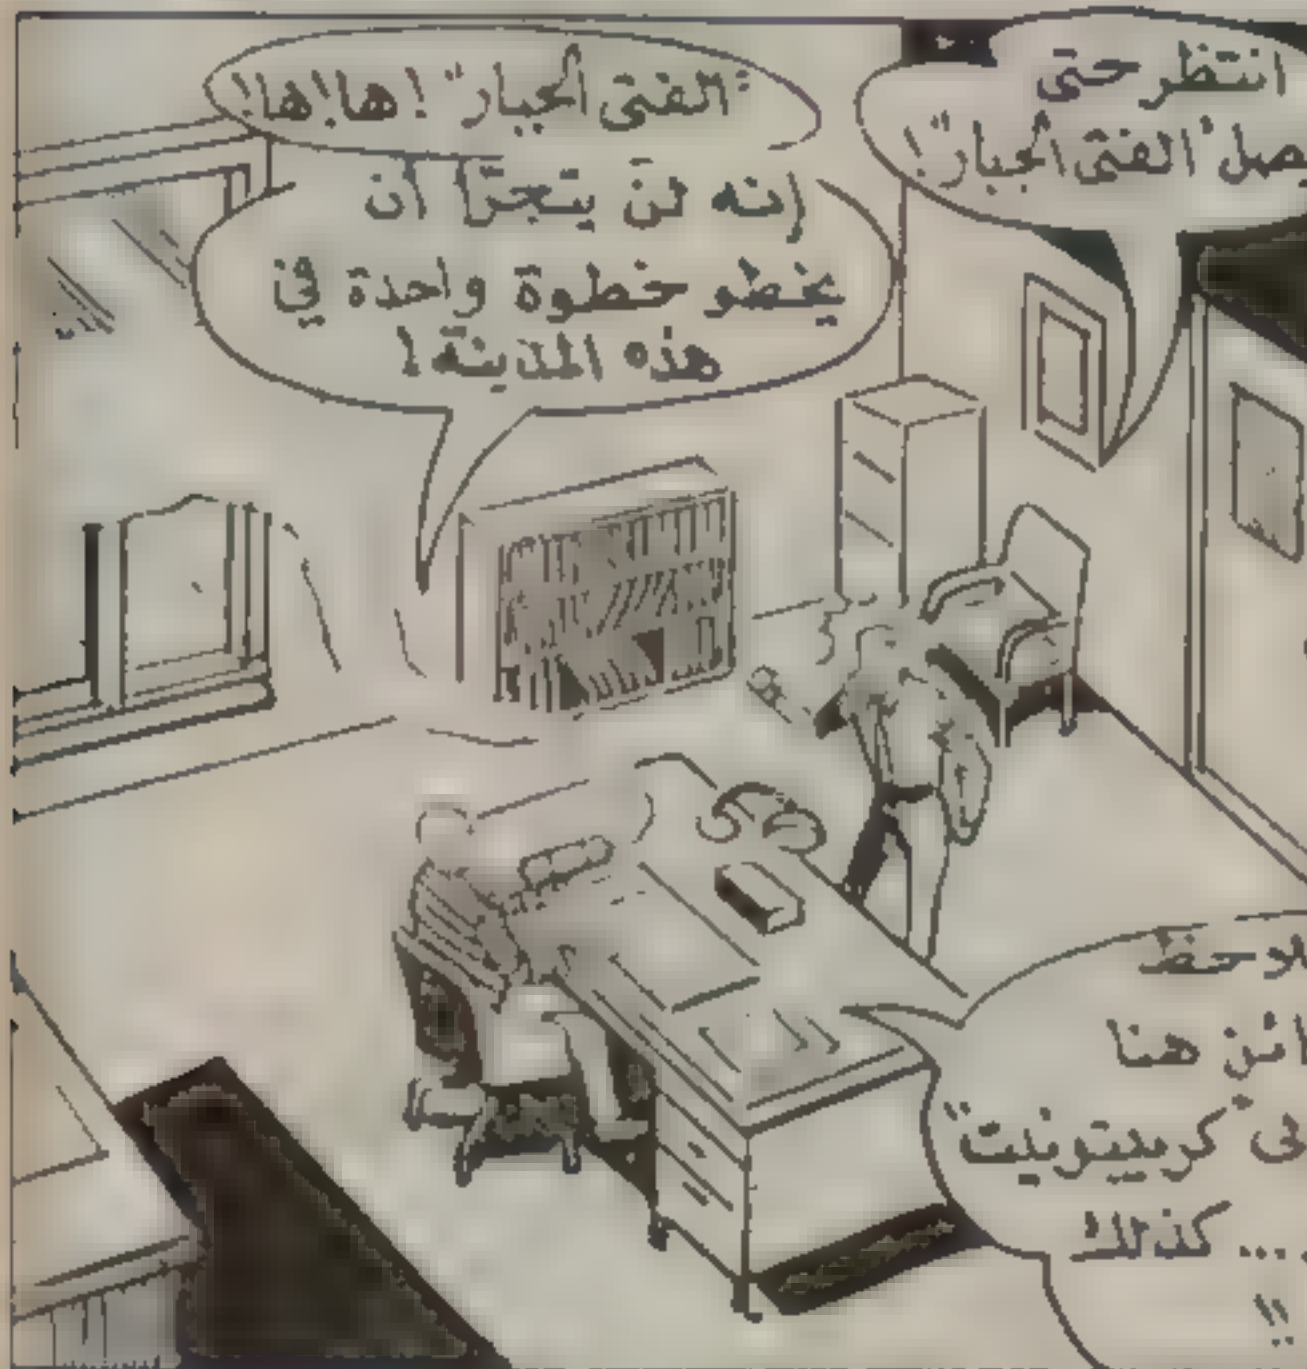 انتظر حتى
يصل "الفتى الجبار"!
"الفتى الجبار"! ها!ها!
إنه لن يتجرّأ أن
يخطو خطوة واحدة في
هذه المدينة!
هنا
"كريبتونيت"
... كذلك
!!